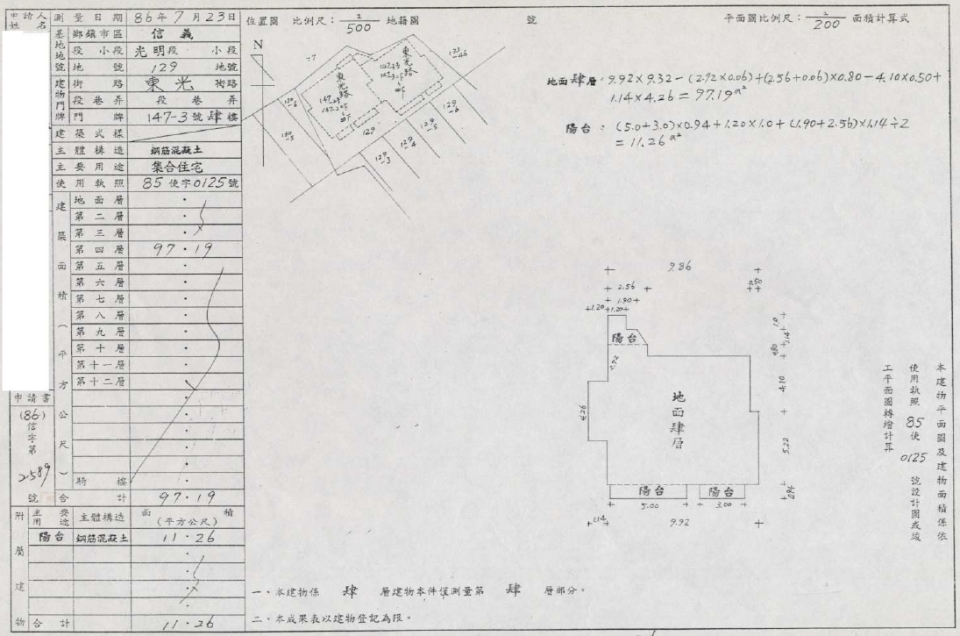 申請人姓名
測量日期 86年7月23日
基地地號 鄉鎮市區 信義
段小段 光明段 小段
地號 129 地號
建物門牌 街路 東光 街路
段巷弄 段巷弄
門牌 147-3號肆樓
建築式樣
主體構造 鋼筋混凝土
主要用途 集合住宅
使用執照 85使字0125號
建築面積(平方公尺)
地面層
第二層
第三層
第四層 97.19
第五層
第六層
第七層
第八層
第九層
第十層
第十一層
第十二層
騎樓
合計 97.19
申請書
(86)
信字第
2589
號
附屬建物
主要用途 主體構造 面積(平方公尺)
陽台 鋼筋混凝土 11.26
合計 11.26
位置圖 比例尺:1/500 地籍圖 號
平面圖比例尺:1/200 面積計算式
N
77
129
129-3
129-4
129-5
129-6
東光路
東光路
地面肆層:9.92×9.32-(2.72×0.06)+(2.56+0.06)×0.80-4.10×0.50+
1.14×4.26=97.19m²
陽台:(5.0+3.0)×0.94+1.20×1.0+(1.90+2.56)×1.14÷2
=11.26m²
9.86
2.56
0.50
1.90
1.20
1.20
陽台
1.14
4.10
4.26
地面肆層
5.22
陽台
陽台
5.00
3.00
1.14
9.92
本建物平面圖及建物面積係依
使用執照85使0125號設計圖或竣
工平面圖轉繪計算
一、本建物係肆層建物本件僅測量第肆層部分。
二、本成果表以建物登記為限。